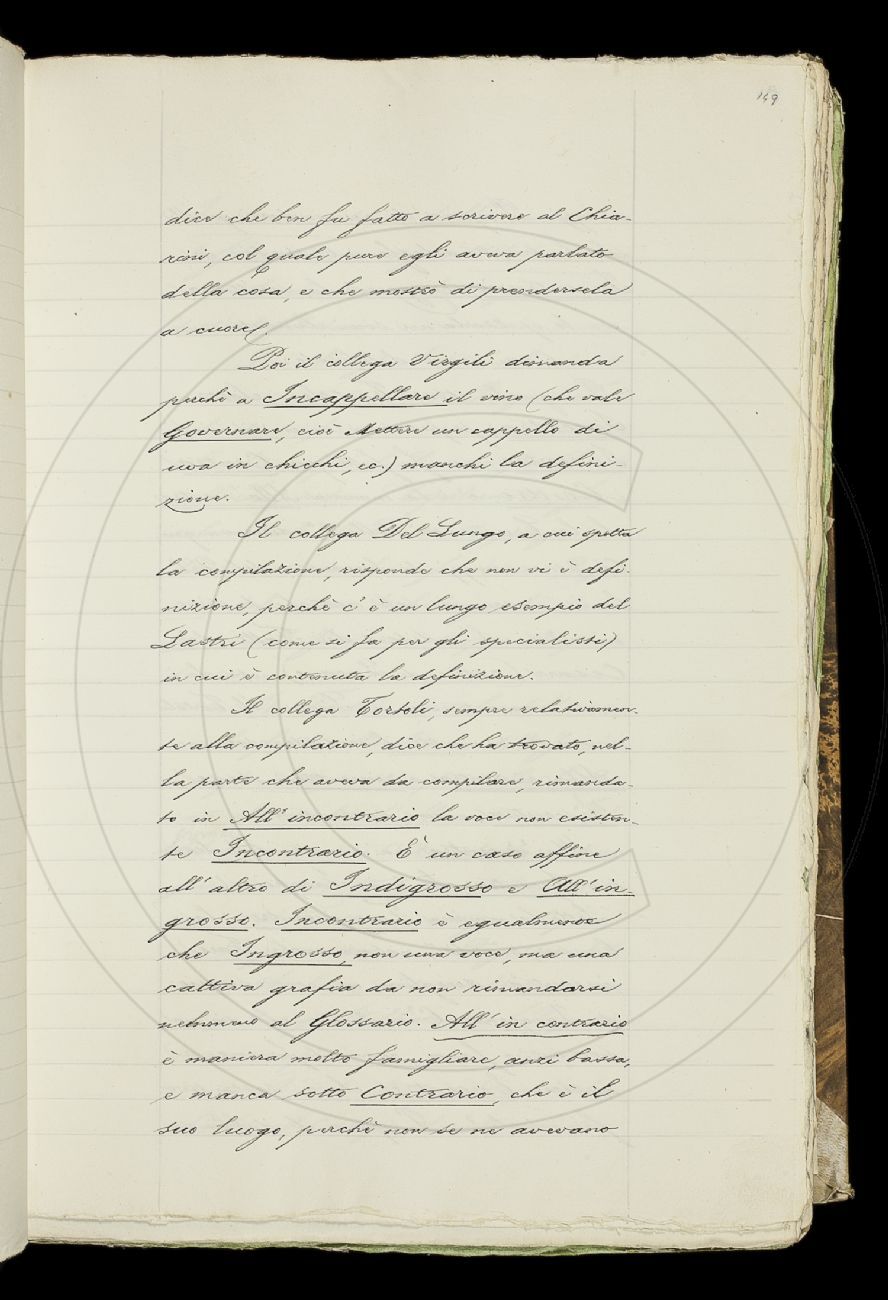 149
dice che ben fu fatto a scrivere al Chia-
rini, col quale pure egli aveva parlato
della cosa, e che mostrò di prendersela
a cuore.
Poi il collega Virgili dimanda
perchè a Incappellare il vino (che vale
Governare, cioè Mettere un cappello di
uva in chicchi, ec.) manchi la defini-
zione.
Il collega Del Lungo, a cui spetta
la compilazione, risponde che non vi è defi-
nizione, perchè c'è un lungo esempio del
Lastri (come si fa per gli specialissi)
in cui è contenuta la definizione.
Il collega Tortoli, sempre relativamen-
te alla compilazione, dice che ha trovato, nel-
la parte che aveva da compilare, rimanda-
to in All'incontrario la voce non esisten-
te Incontrario. È un caso affine
all'altro di Indigrosso e All'in-
grosso. Incontrario è egualmente
che Ingrosso, non una voce, ma una
cattiva grafia da non rimandarsi
nemmeno al Glossario. All'in contrario
è maniera molto famigliare, anzi bassa,
e manca sotto Contrario, che è il
suo luogo, perchè non se ne avevano